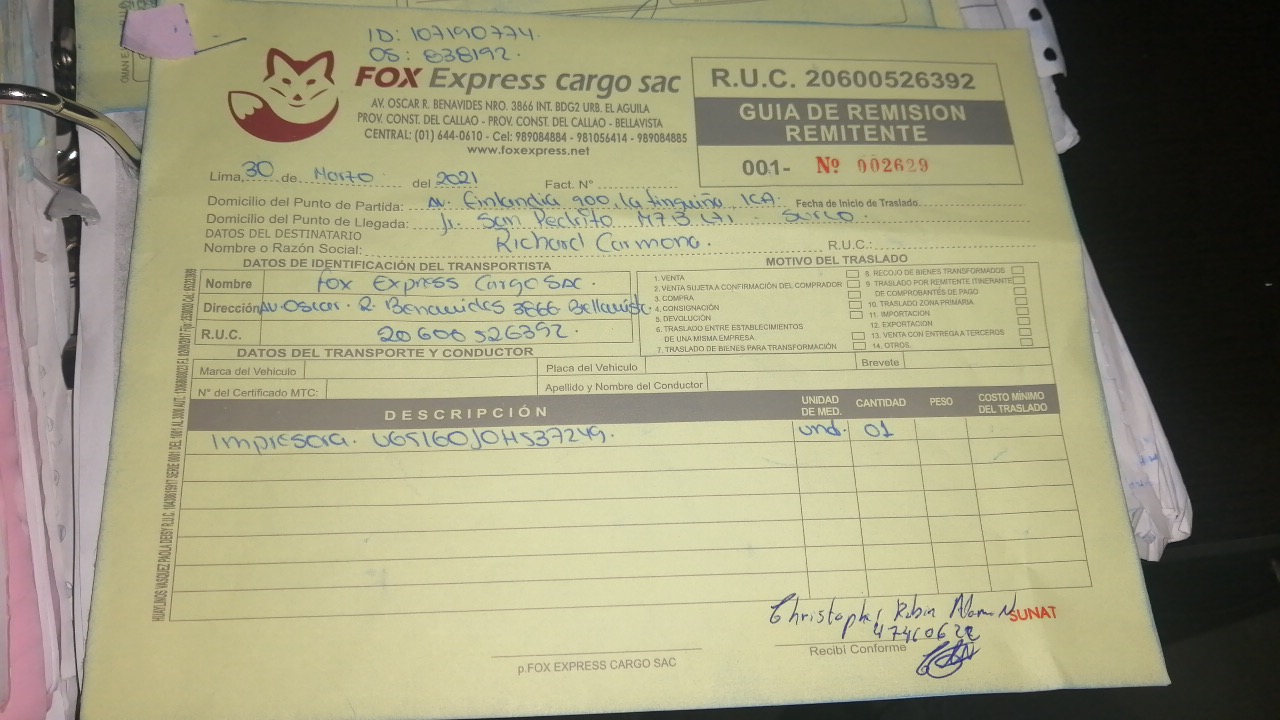 ID: 107190774.
OS: 838192.
FOX Express cargo sac
AV. OSCAR R. BENAVIDES NRO. 3866 INT. BDG2 URB. EL AGUILA
PROV. CONST. DEL CALLAO - PROV. CONST. DEL CALLAO - BELLAVISTA
CENTRAL: (01) 644-0610 - Cel: 989084884 - 981056414 - 989084885
www.foxexpress.net
R.U.C. 20600526392
GUIA DE REMISION
REMITENTE
001- Nº 002629
Lima, 30 de Marzo del 2021 Fact. N°
Domicilio del Punto de Partida: Av. Finlandia 900, la tinguiña, ICA. Fecha de Inicio de Traslado.
Domicilio del Punto de Llegada: Jr. San Pedrito M73 Lt1 . Surco.
DATOS DEL DESTINATARIO
Nombre o Razón Social: Richard Carmona. R.U.C.:
DATOS DE IDENTIFICACIÓN DEL TRANSPORTISTA
Nombre Fox Express Cargo SAC.
Dirección Av. Oscar. R. Benavides 3866 Bellavista.
R.U.C. 20600526392.
MOTIVO DEL TRASLADO
1. VENTA
2. VENTA SUJETA A CONFIRMACIÓN DEL COMPRADOR
3. COMPRA
4. CONSIGNACIÓN
5. DEVOLUCIÓN
6. TRASLADO ENTRE ESTABLECIMIENTOS
DE UNA MISMA EMPRESA
7. TRASLADO DE BIENES PARA TRANSFORMACIÓN
8. RECOJO DE BIENES TRANSFORMADOS
9. TRASLADO POR REMITENTE ITINERANTE
DE COMPROBANTES DE PAGO
10. TRASLADO ZONA PRIMARIA
11. IMPORTACION
12. EXPORTACION
13. VENTA CON ENTREGA A TERCEROS
14. OTROS.
DATOS DEL TRANSPORTE Y CONDUCTOR
Marca del Vehículo Placa del Vehículo Brevete
N° del Certificado MTC: Apellido y Nombre del Conductor
DESCRIPCIÓN UNIDAD DE MED. CANTIDAD PESO COSTO MÍNIMO DEL TRASLADO
Impresora. U65160J0H537249. und. 01
Christopher Robin
SUNAT
Recibí Conforme
p.FOX EXPRESS CARGO SAC